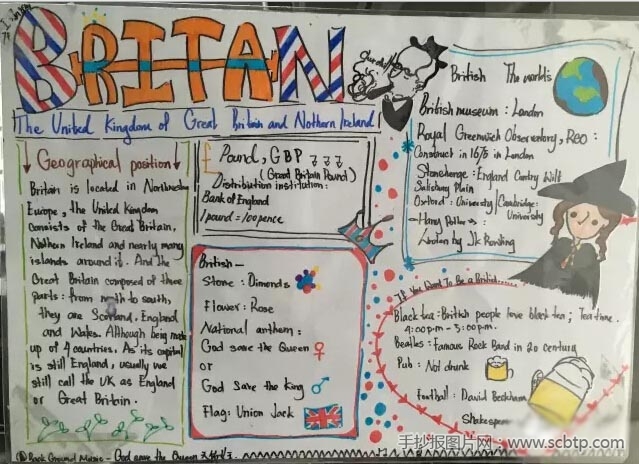 BRITAN
The United Kingdom of Great Britain and Nothern Ireland
Geographical position
Britain is located in Northwestern
Europe, the United Kingdom
consists of the Great Britain,
Nothern Ireland and nearly many
islands around it. And the
Great Britain composed of three
parts: from north to south,
they are Scotland, England
and Wales. Although being made
up of 4 countries. As its capital
is still England, usually we
still call the UK as England
or Great Britain.
£ Pound, GBP
(Great Britain Pound)
Distribution institution:
Bank of England
1 pound = 100 pence
British —
Stone: Dimonds
Flower: Rose
National anthem:
God save the Queen ♀
or
God Save the king ♂
Flag: Union Jack
Churchill
British The world's
British museum: London
Royal Greenwich Observatory, RGO:
Construct in 1675 in London
Stonehenge: England Contry Wilt
Salisbury Plain
Oxford: University / Cambridge: University
Harry Potter:
Written by J.k Rowling
If You Want To Be a British......
Black tea: British people love black tea; Tea time.
4:00pm - 5:00pm.
Beatles: Famous Rock Band in 20 century
Pub: Not drunk
Football: David Beckham
Shakespear
Back Ground Music - God save the Queen
手抄报图片网:www.scbtp.com